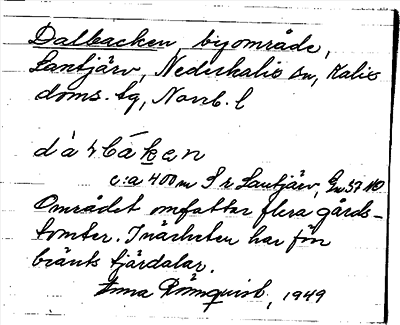 Dalbacken, byområde,
Lantjärv, Nederkalix sn, Kalix
doms. tg, Norrb. l
dàɽbáken
c:a 400 m S r Lantjärv, Gm 37 NO
Området omfattar flera gårds-
tomter. I närheten har för
bränts tjärdalar.
Anna Rönnquist, 1949